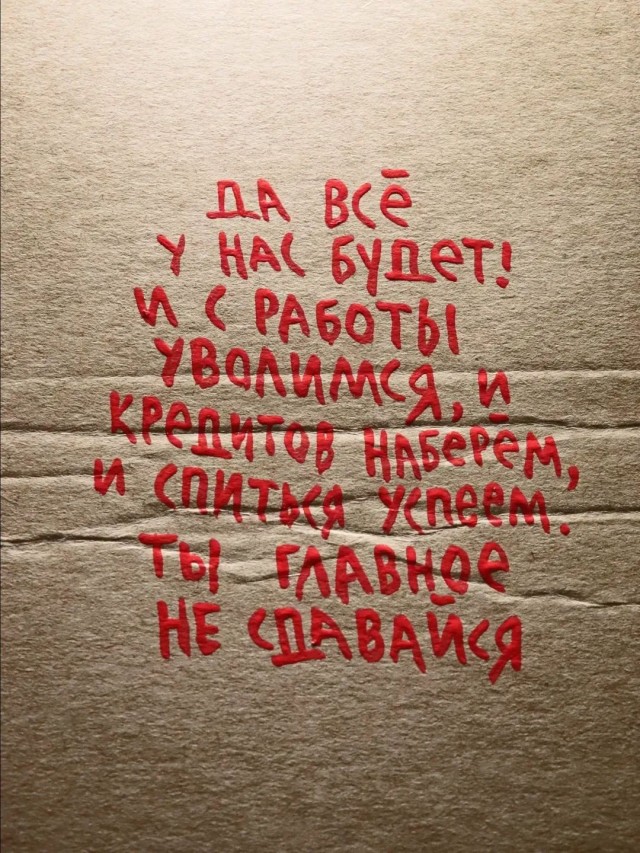 ДА ВСЁ
У НАС БУДЕТ!
И С РАБОТЫ
УВОЛИМСЯ, И
КРЕДИТОВ НАБЕРЁМ,
И СПИТЬСЯ УСПЕЕМ.
ТЫ ГЛАВНОЕ
НЕ СДАВАЙСЯ